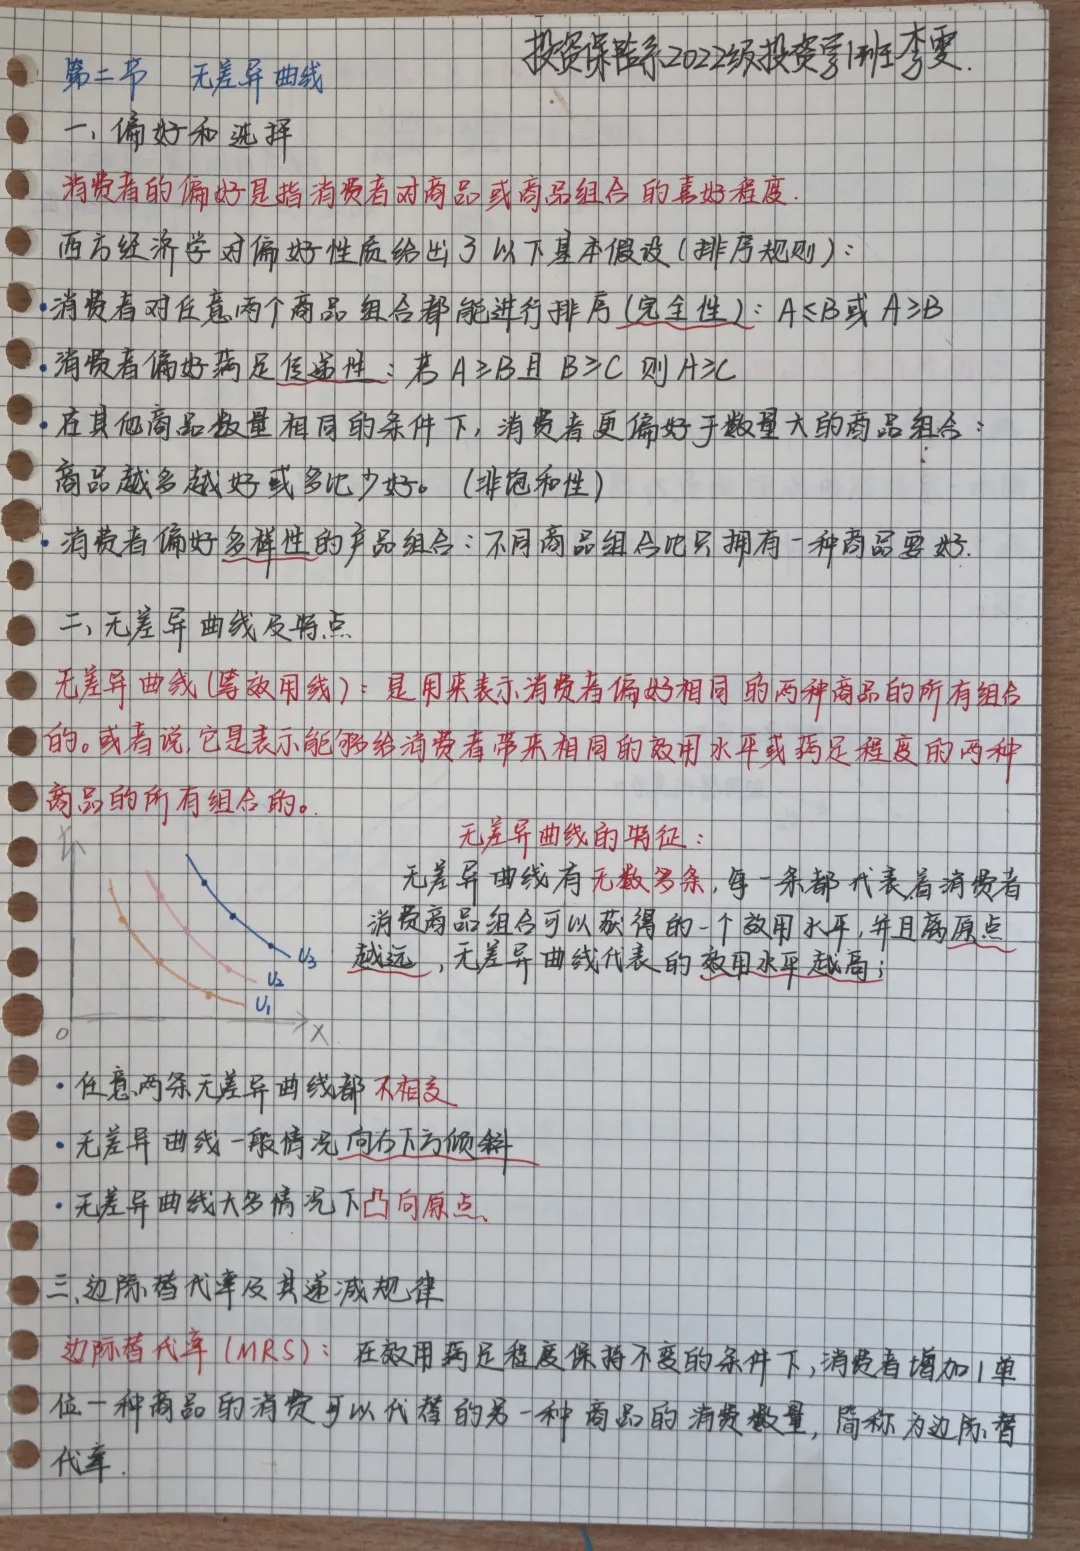 投资保险系2022级投资学1班李雯.
第二节 无差异曲线
一、偏好和选择
消费者的偏好是指消费者对商品或商品组合的喜好程度.
西方经济学对偏好性质给出了以下基本假设(排序规则):
·消费者对任意两个商品组合都能进行排序(完全性): A≤B或A≥B
·消费者偏好满足传递性: 若A≥B且B≥C则A≥C
·在其他商品数量相同的条件下,消费者更偏好于数量大的商品组合:
商品越多越好或多比少好。(非饱和性)
·消费者偏好多样性的产品组合:不同商品组合比只拥有一种商品要好.
二、无差异曲线及特点
无差异曲线(等效用线): 是用来表示消费者偏好相同的两种商品的所有组合
的。或者说,它是表示能够给消费者带来相同的效用水平或满足程度的两种
商品的所有组合的。
无差异曲线的特征:
无差异曲线有无数多条,每一条都代表着消费者
消费商品组合可以获得的一个效用水平,并且离原点
越远,无差异曲线代表的效用水平越高;
Y
U3
U2
U1
0
X
·任意两条无差异曲线都不相交
·无差异曲线一般情况向右下方倾斜
·无差异曲线大多情况下凸向原点、
三、边际替代率及其递减规律
边际替代率(MRS): 在效用满足程度保持不变的条件下,消费者增加1单
位一种商品的消费可以代替的另一种商品的消费数量,简称为边际替
代率.